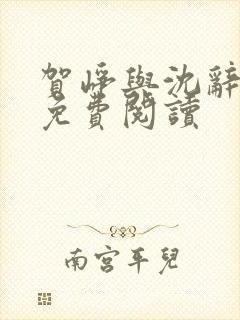 賀崢與沈辭
免費閱讀
南宮平兒